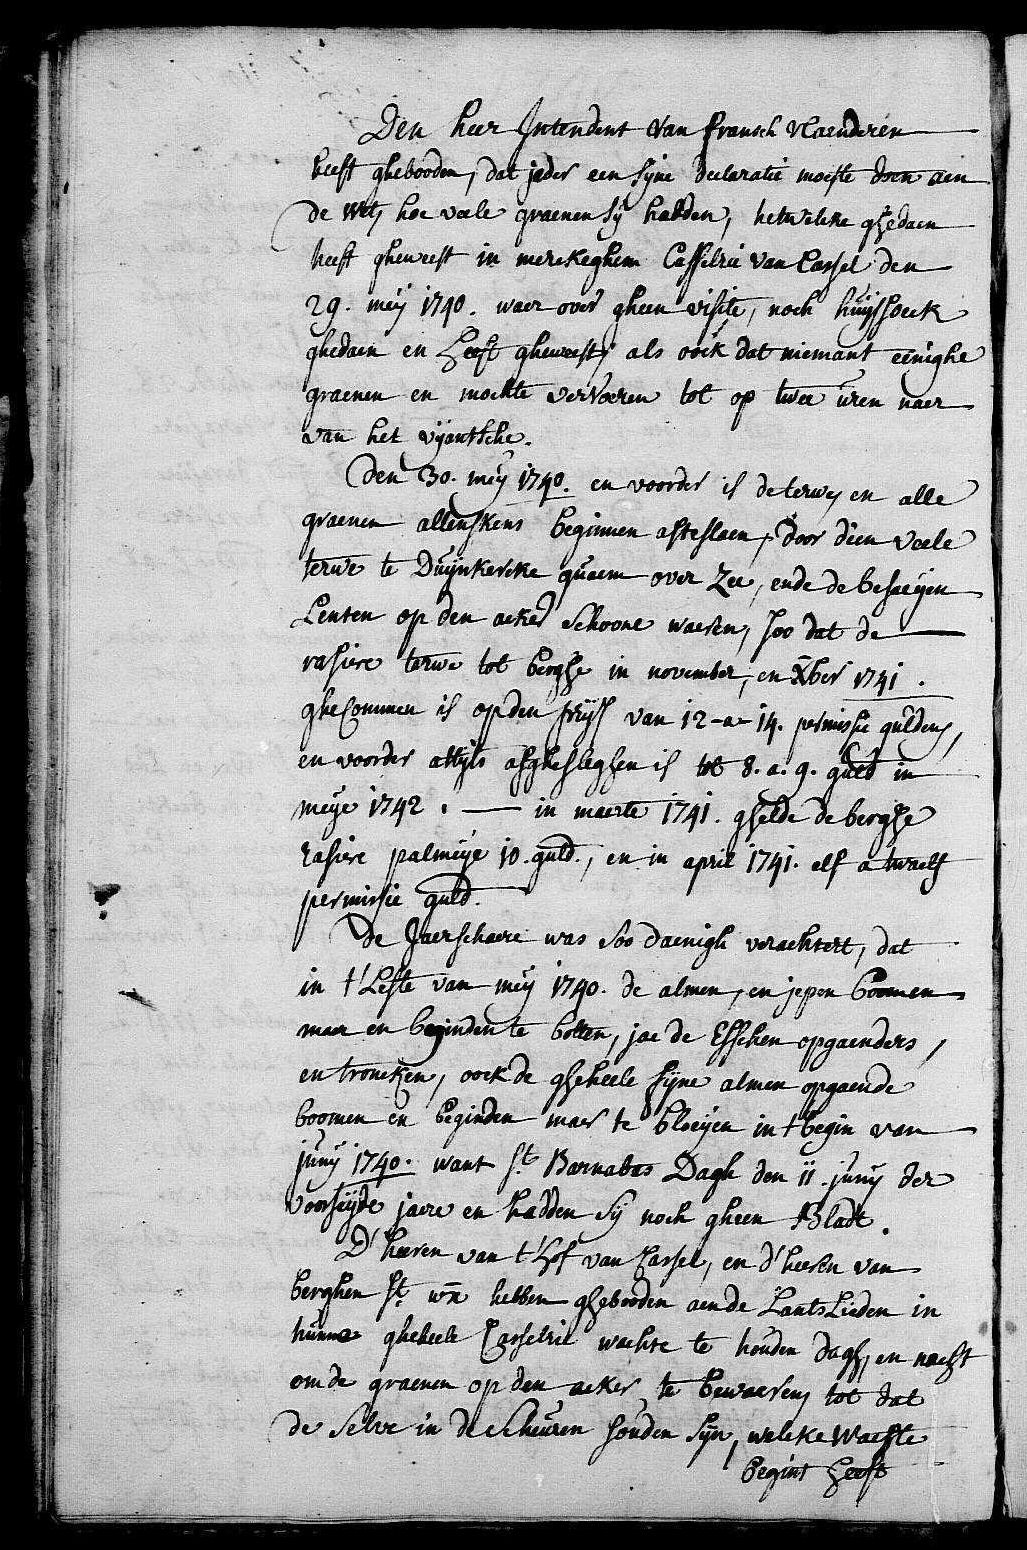 Den heer Intendent van fransch vlaenderen
heeft ghebooden, dat jeder een syne declaratie moeste doen aen
de wet, hoe veele graenen sy hadden, hetwelcke ghedaen
heeft gheweest in merckeghem Casselrie van Cassel den
29. meÿ 1740. waer over gheen visite, noch huÿssoeck
ghedaen en heeft gheweest, als oock dat niemant eenighe
graenen en mochte vervoeren tot op twee uren naer
van het vÿantsche.
Den 30. meÿ 1740. en voorder is de terwe, en alle
graenen allenskens beginnen afteslaen, door dien veele
terwe te Duÿnkercke quaem over Zee, ende de besaeÿen
Lenten op den acker schoone waeren, soo dat de
rasiere terwe tot berghe in november, en Xber 1741.
ghecommen is op den prÿs van 12-a-14. permissie guldens,
en voorder altyts afghesleghen is tot 8. a. 9. guld in
meÿe 1742. — in maerte 1741. ghelde de berghe
rasiere palmeÿe 10. guld., en in april 1741. elf a twaelf
permissie guld.
De Jaerschaere was soo daenigh verachtert, dat
in t'Leste van meÿ 1740. de almen, en jepen boomen
maer en beginden te botten, jae de Esschen opgaenders,
en troncken, oock de gheheele fyne almen opgaende
boomen en beginden maer te bloeÿen in t begin van
junÿ 1740. want st Barnabas Dagh den 11. junÿ der
voorseÿde jaere en hadden sÿ noch gheen Bladt.
D'heeren van t'hof van Cassel, en d'heeren van
berghen st wn hebben ghebooden aen de Lants Lieden in
hunne gheheele Casselrie wachte te houden dagh, en nacht
om de graenen op den acker te bewaeren, tot dat
de selve in de scheuren souden syn, welcke wachte
begint heeft